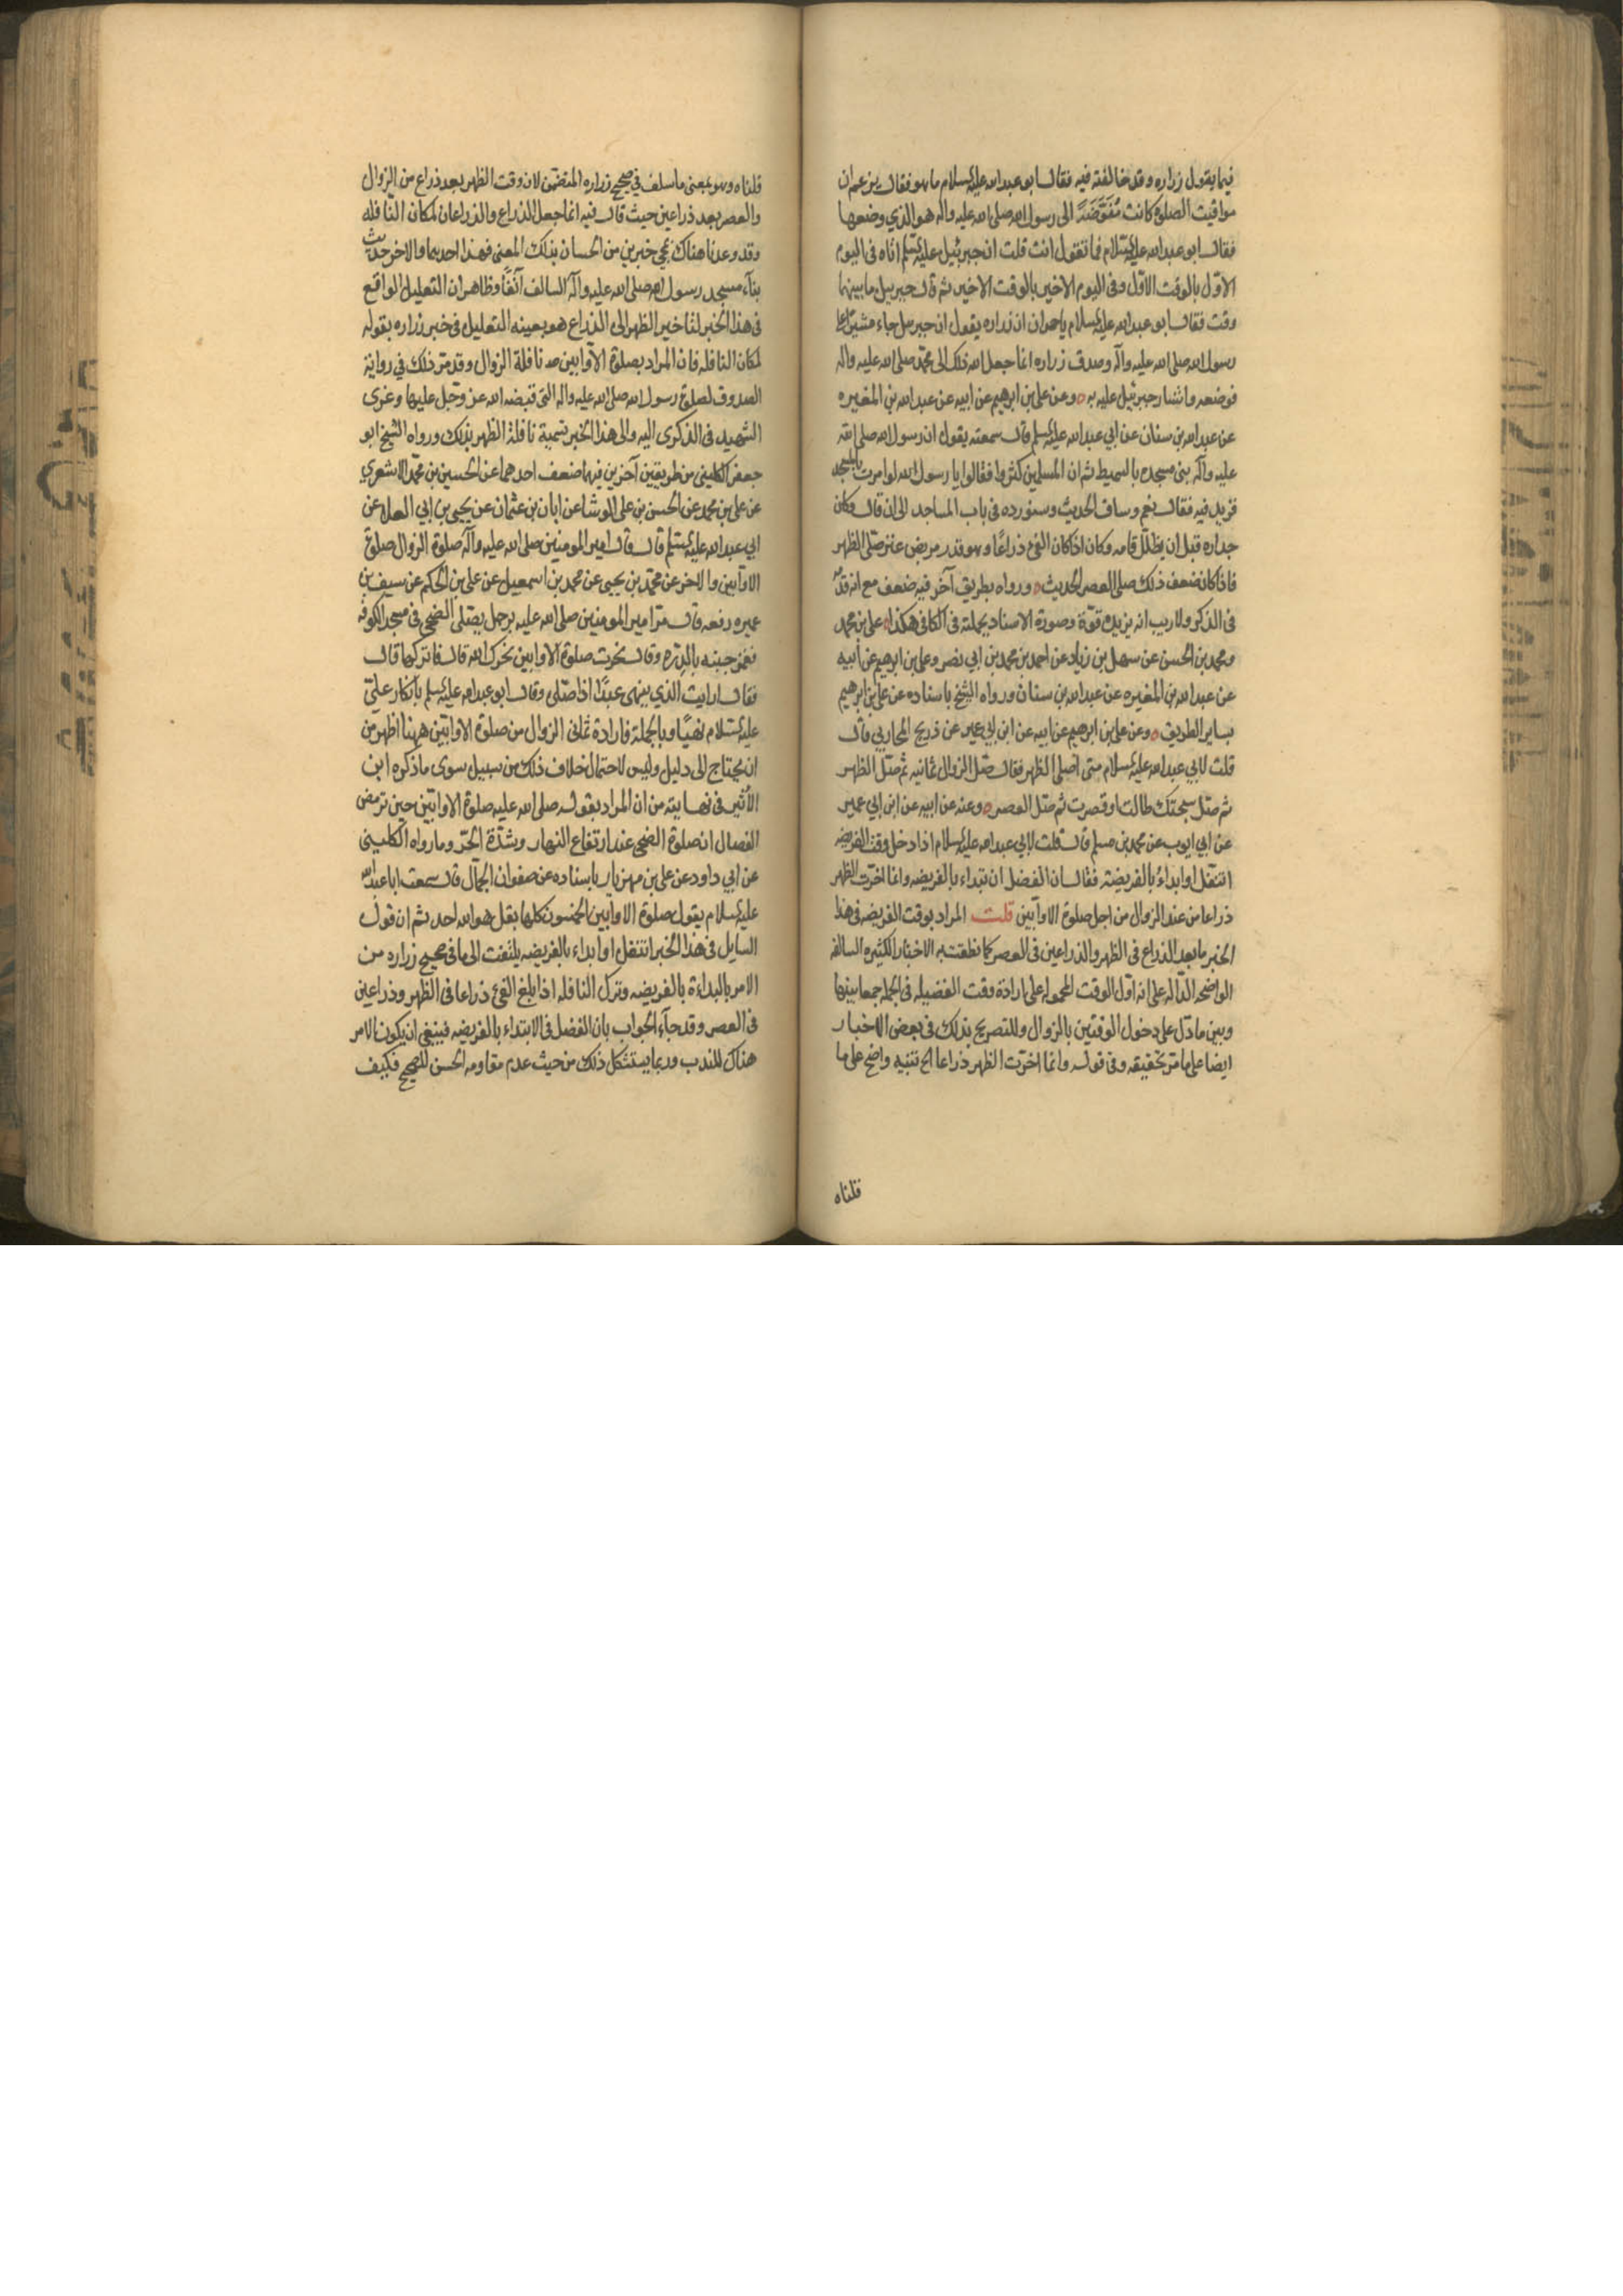 فيما يقول زراره وقد خالفته فيه فقال ابو عبد الله عليه السلام ما هو فقال يزعم ان
مواقيت الصلوة كانت مُفَوَّضَةً الى رسول الله صلى الله عليه واله هو الذي وضعها
فقال ابو عبد الله عليه السلام فما تقول انت قلت ان جبرئيل عليه السلم اتاه فى اليوم
الاوّل بالوقت الاوّل وفى اليوم الاخير بالوقت الاخير ثم قال جبرييل ما بينهما
وقت فقال ابو عبد الله عليه السلام يا حمران ان زراره يقول ان جبرييل جاء مشيرا على
رسول الله صلى الله عليه وآله وصدق زراره انما جعل الله ذلك الى محمّد صلى الله عليه واله
فوضعه واشار جبرئيل عليه به ٥ وعن على بن ابرهيم عن ابيه عن عبد الله بن المغيره
عن عبد الله بن سنان عن ابي عبد الله عليه السلم قال سمعته يقول ان رسول الله صلى الله
عليه وآله بنى مسجده بالسميط ثم ان المسلمين كثروا فقالوا يا رسول الله لو امرت بالمسجد
فزيد فيه فقال نعم وساق الحديث وسنورده فى باب المساجد الى ان قال وكان
جداره قبل ان يظلل قامه وكان اذا كان الفئ ذراعًا وهو قدر مربض عنز صلّى الظهر
فاذا كان ضعف ذلك صلى العصر الحديث ٥ ورواه بطريق آخر فيه ضعف مع انه قدّمه
فى الذكر ولا ريب انه يزيده قوّة وصورة الاسناد بجملته فى الكافى هكذا على بن محمد
ومحمد بن الحسن عن سهل بن زياد عن احمد بن محمد بن ابي نصر وعلى بن ابرهيم عن ابيه
عن عبد الله بن المغيره عن عبد الله بن سنان ورواه الشيخ باسناده عن على بن ابرهيم
بساير الطريق ٥ وعن على بن ابرهيم عن ابيه عن ابن ابي عمير عن ذريح المحاربي قال
قلت لابي عبد الله عليه السلام متى اصلى الظهر فقال صلّ الزوال ثمانيه ثم صلّ الظهر
ثم صلّ سبحتك طالت او قصرت ثم صلّ العصر ٥ وعنه عن ابيه عن ابن ابي عمير
عن ابي ايوب عن محمد بن مسلم قال قلت لابي عبد الله عليه السلام اذا دخل وقت الفريضه
اتنفّل او ابداء بالفريضة فقال ان الفضل ان تبداء بالفريضه وانما اخّرت الظهر
ذراعا من عند الزوال من اجل صلوة الاوّابين قلت المراد بوقت الفريضه فى هذا
الخبر ما بعد الذراع فى الظهر والذراعين فى العصر كما نطقت به الاخبار الكثيره السالفه
الواضحه الدّاله على انه اوّل الوقت المحمولة على ارادة وقت الفضيله فى الجمله جمعا بينها
وبين ما دّل على دخول الوقتين بالزوال وللتصريح بذلك فى بعض الاخبار
ايضا على ما مرّ تحقيقه وفى قوله وانما اخّرت الظهر ذراعا الخ تنبيه واضح على ما
قلناه
قلناه وهو بمعنى ما سلف فى صحيح زراره المتضمّن لان وقت الظهر بعد ذراع من الزوال
والعصر بعد ذراعين حيث قال فيه انما جعل الذراع والذراعان لمكان النافله
وقد وعدنا هناك بمجئ خبرين من الحسان بذلك المعنى فهذا احدهما والاخر حديث
بنآء مسجد رسول الله صلى الله عليه وآله السالف آنفًا وظاهر ان التعليل الواقع
فى هذا الخبر لتاخير الظهر الى الذراع هو بعينه التعليل فى خبر زراره بقوله
لمكان النافله فان المراد بصلوة الاوّابين صه نافلة الزوال وقد مرّ ذلك في رواية
الصدوق لصلوة رسول الله صلى الله عليه واله التى قبضه الله عز وجّل عليها وعزى
الشهيد فى الذكرى اليه والى هذا الخبر تسمية نافلة الظهر بذلك ورواه الشيخ ابو
جعفر الكلينى من طريقين آخرين فيهما ضعف احدهما عن الحسين بن محمّد الاشعري
عن على بن محمد عن الحسن بن على الوشا عن ابان بن عثمان عن يحيى بن ابي العلا عن
ابي عبد الله عليه السلم قال قال امير المومنين صلى الله عليه وآله صلوة الزوال صلوة
الاوّابين والاخر عن محمّد بن يحيى عن محمد بن اسمعيل عن على بن الحكم عن سيف بن
عميره رفعه قال مرّ امير المومنين صلى الله عليه برجل يصلى الضحى فى مسجد الكوفه
فغمز جنبه بالدرّه وقال نحرت صلوة الاوابين نحرك الله قال فاتركها قال
فقال ارايت الذي ينهى عبدًا اذا صلّى وقال ابو عبد الله عليه السلم بانكار علىّ
عليه السّلام نهيًا وبالجملة فارادة ثمانى الزوال من صلوة الاوّابين ههنا اظهر من
ان يحتاج الى دليل وليس لاحتمال خلاف ذلك من سبيل سوى ما ذكره ابن
الأثير فى نهايته من ان المراد بقوله صلى الله عليه صلوة الاوابّين حين ترمض
الفصال ان صلوة الضحى عند ارتفاع النهار وشدّة الحّر وما رواه الكلينى
عن ابي داود عن على بن مهزيار باسناده عن صفوان الجمّال قال سمعت ابا عبد الله
عليه السلام يقول صلوة الاوّابين الخمسون كلها بقل هو الله احد ثم ان قول
السايل فى هذا الخبر اتنفل او ابداء بالفريضه يلتفت الى ما فى صحيح زراره من
الامر بالبداءة بالفريضه وترك النافله اذا بلغ الفئ ذراعا فى الظهر وذراعين
فى العصر وقد جآء الجواب بان الفضل فى الابتداء بالفريضه فينبغى ان يكون الامر
هناك للندب وربما يستشكل ذلك من حيث عدم مقاومه الحسن للصحيح فكيف